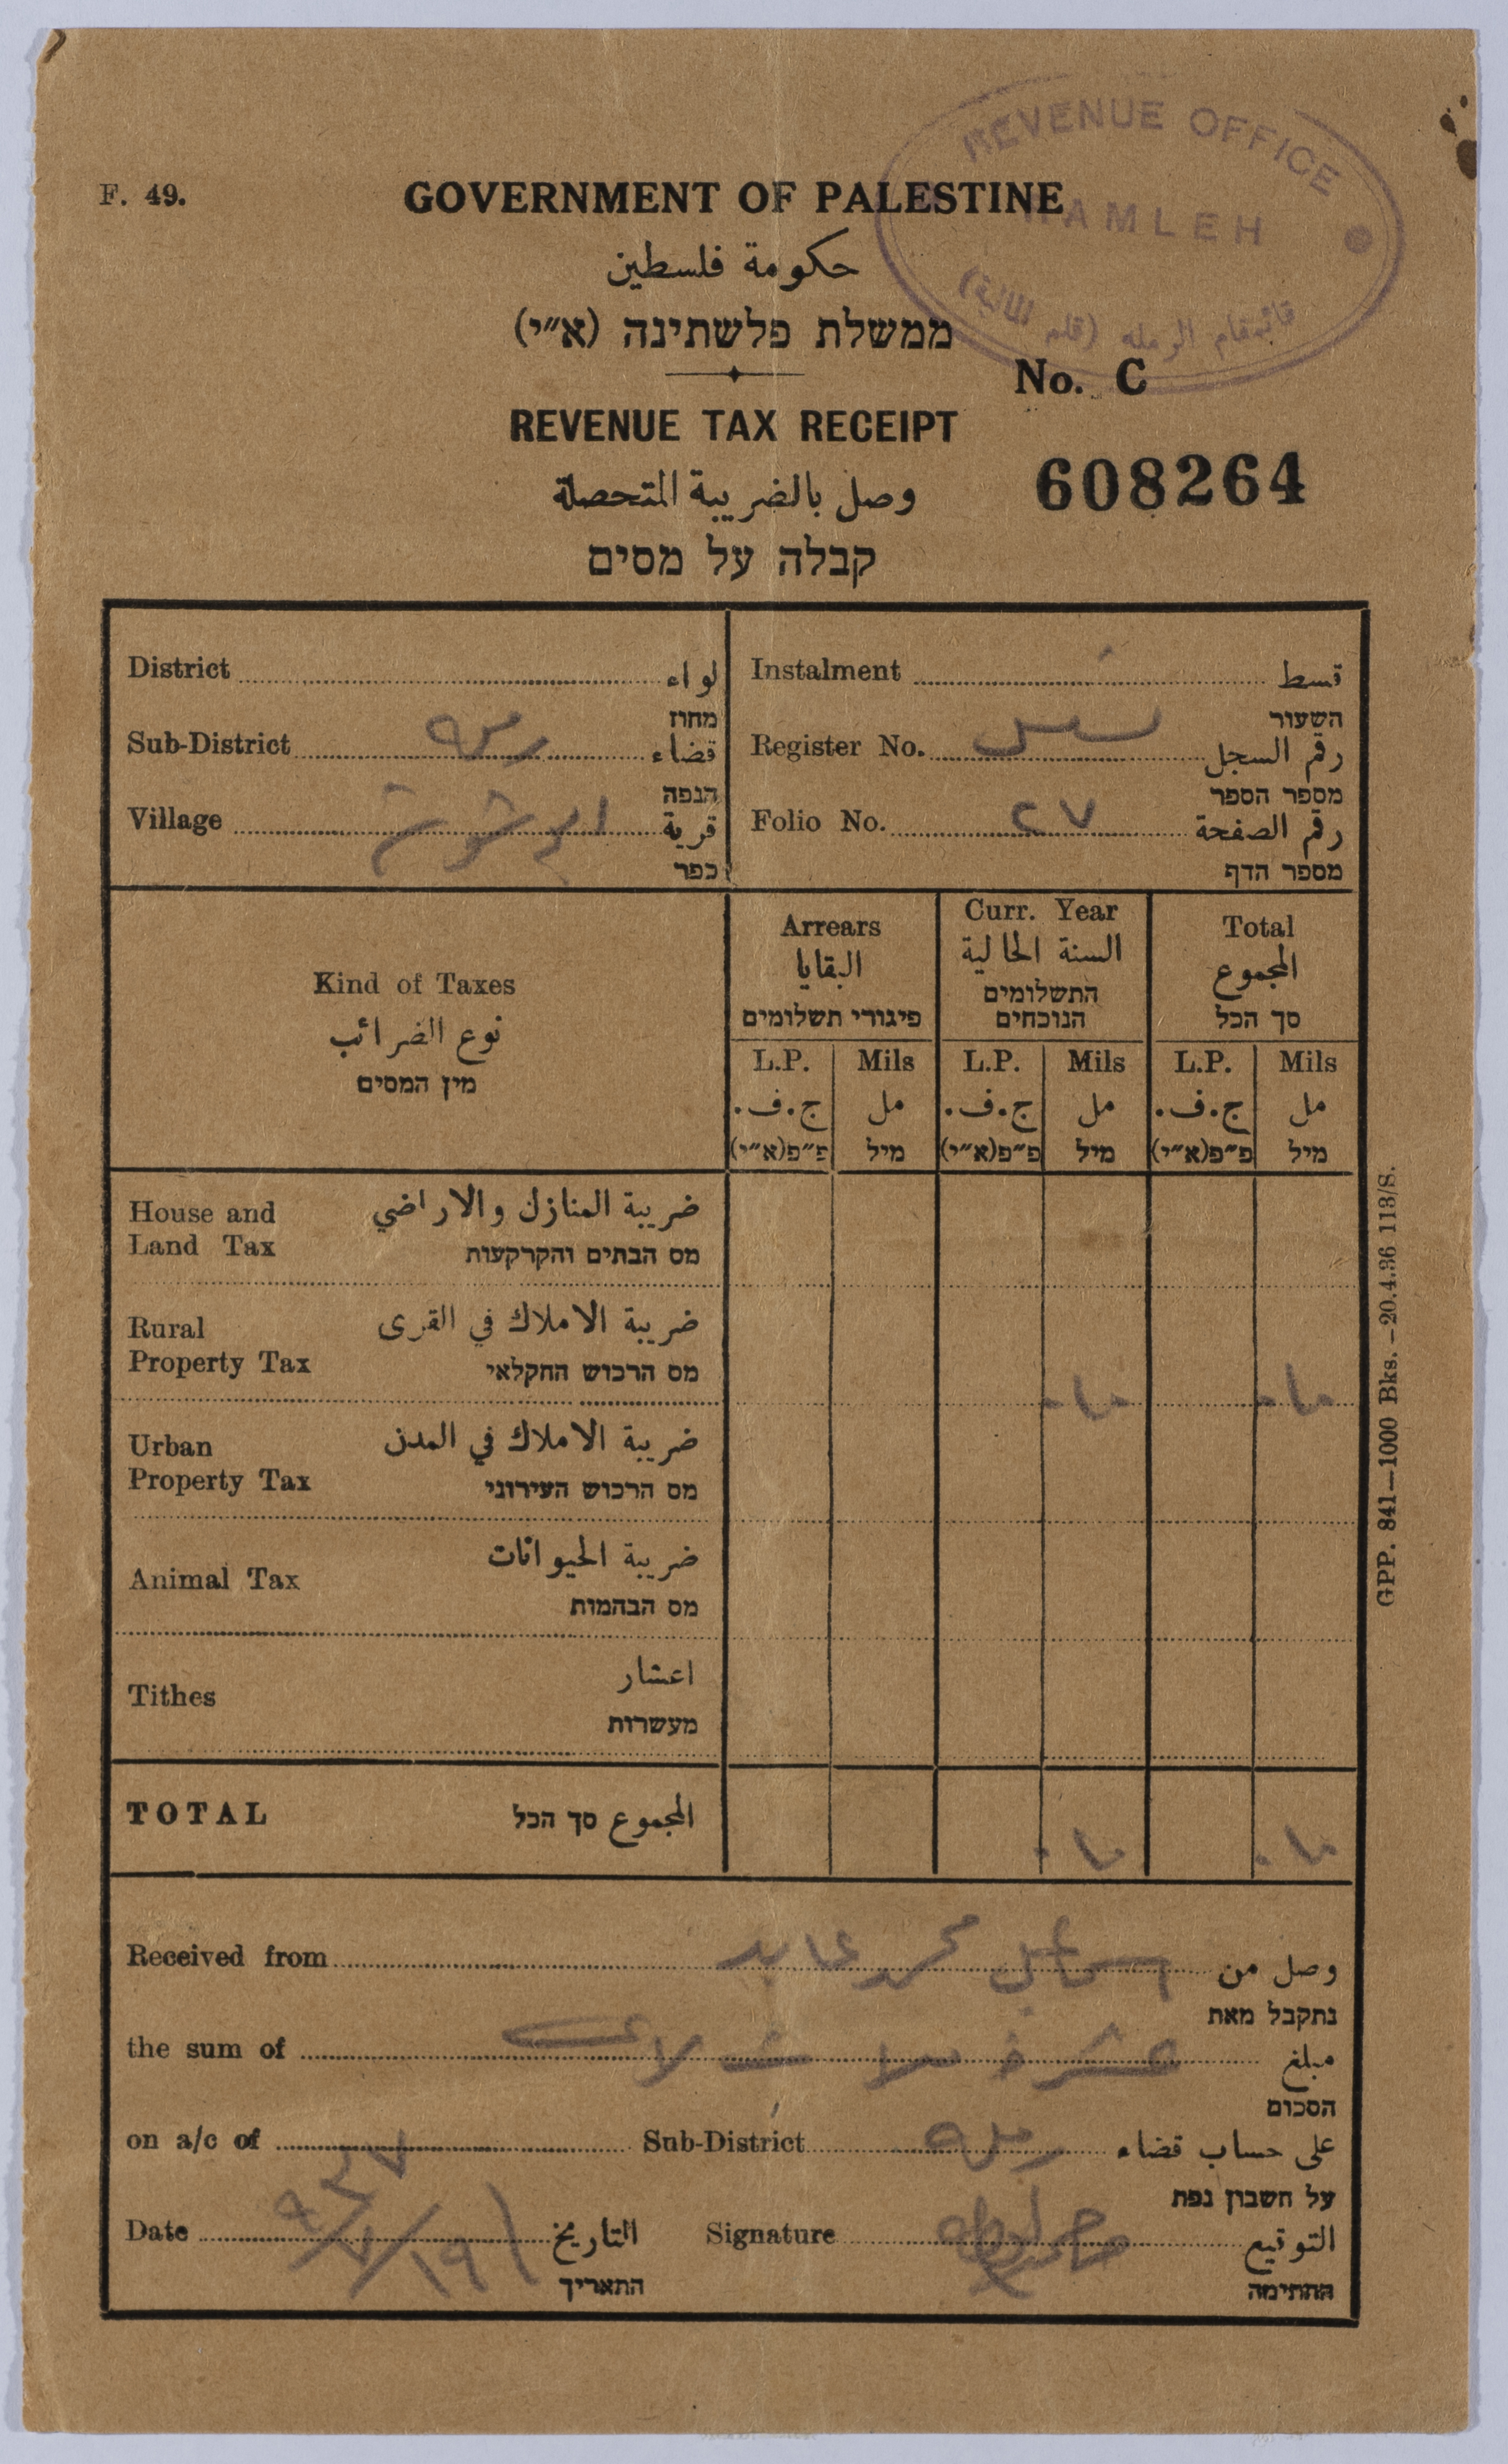 REVENUE OFFICE
RAMLEH
قائمقام الرمله (قلم المالية)
F. 49.
GOVERNMENT OF PALESTINE
حكومة فلسطين
ממשלת פלשתינה (א״י)
No. C
REVENUE TAX RECEIPT
608264
وصل بالضريبة المتحصلة
קבלה על מסים
District لواء
מחוז
Sub-District رمله قضاء
הנפה
Village قرية
כפר
Instalment قسط
השעור
Register No. رقم السجل
מספר הספר
Folio No. ٢٧ رقم الصفحة
מספר הדף
Kind of Taxes
نوع الضرائب
מין המסים
Arrears
البقايا
פיגורי תשלומים
Curr. Year
السنة الحالية
התשלומים
הנוכחים
Total
المجموع
סך הכל
L.P. Mils L.P. Mils L.P. Mils
ج.ف. مل ج.ف. مل ج.ف. مل
פ״פ(א״י) מיל פ״פ(א״י) מיל פ״פ(א״י) מיל
House and ضريبة المنازل والاراضي
Land Tax מס הבתים והקרקעות
Rural ضريبة الاملاك في القرى
Property Tax מס הרכוש החקלאי
Urban ضريبة الاملاك في المدن
Property Tax מס הרכוש העירוני
Animal Tax ضريبة الحيوانات
מס הבהמות
Tithes اعشار
מעשרות
TOTAL المجموع סך הכל
Received from اسماعيل محمد عابد وصل من
נתקבל מאת
the sum of مبلغ
הסכום
on a/c of Sub-District رمله على حساب قضاء
על חשבון נפת
Date التاريخ Signature التوقيع
התאריך החתימה
GPP. 841—1000 Bks. —20.4.36 113/S.